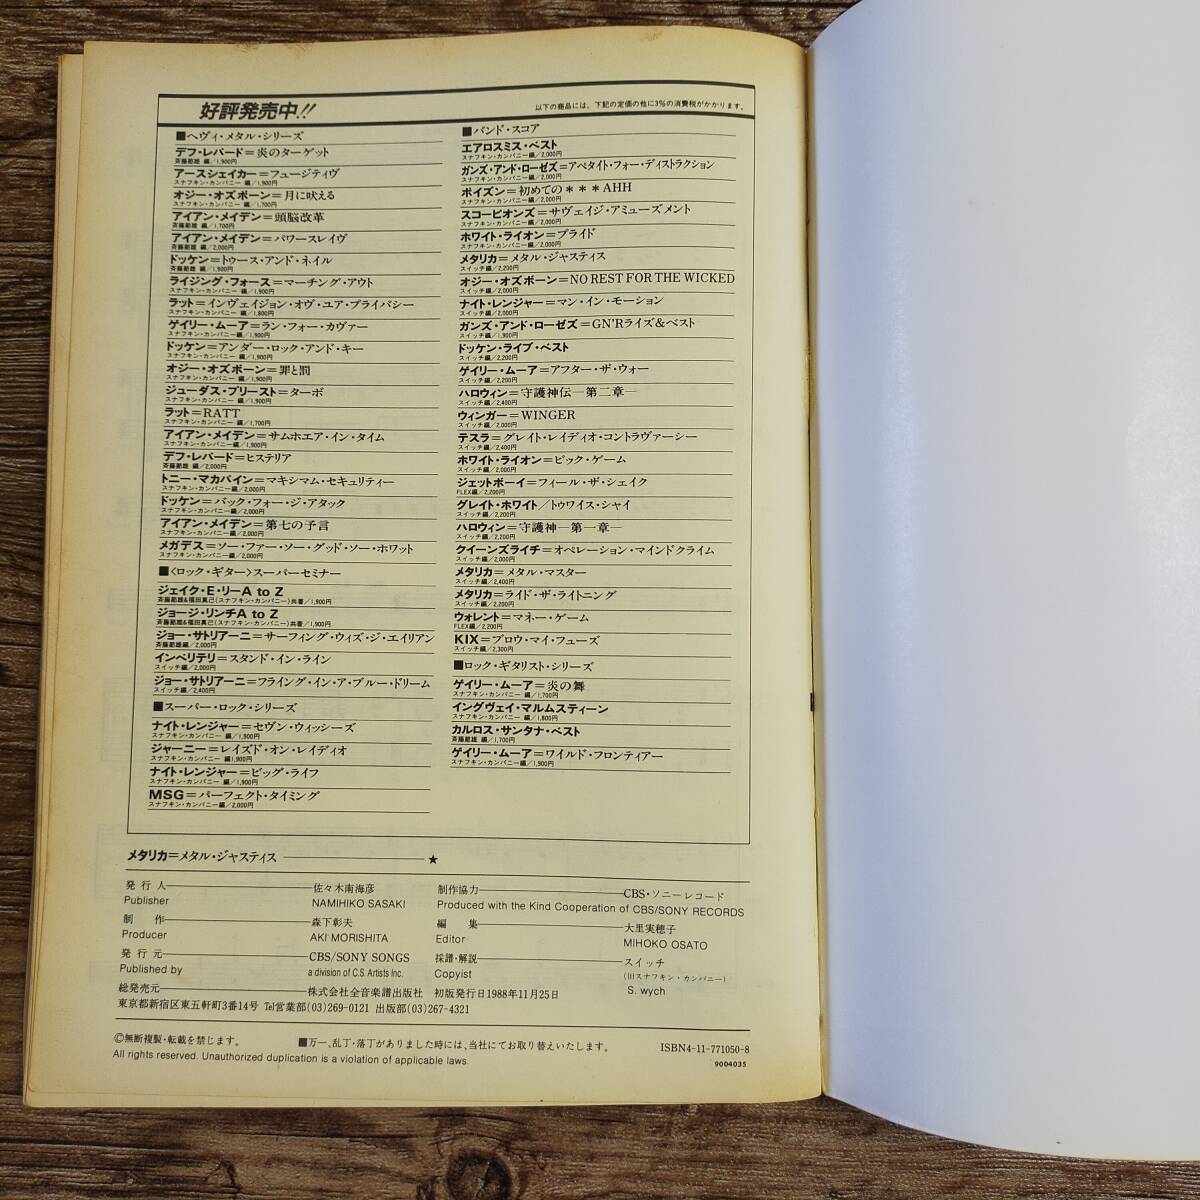 好評発売中!!
以下の商品には、下記の定価の他に3%の消費税がかかります。
■ヘヴィ・メタル・シリーズ
デフ・レパード＝炎のターゲット
斉藤節雄 編/1,900円
アースシェイカー＝フュージティヴ
スナフキン・カンパニー 編/1,900円
オジー・オズボーン＝月に吠える
スナフキン・カンパニー 編/1,700円
アイアン・メイデン＝頭脳改革
斉藤節雄 編/1,700円
アイアン・メイデン＝パワースレイヴ
斉藤節雄 編/2,000円
ドッケン＝トゥース・アンド・ネイル
斉藤節雄 編/1,900円
ライジング・フォース＝マーチング・アウト
スナフキン・カンパニー 編/1,900円
ラット＝インヴェイジョン・オヴ・ユア・プライバシー
スナフキン・カンパニー 編/1,800円
ゲイリー・ムーア＝ラン・フォー・カヴァー
スナフキン・カンパニー 編/1,900円
ドッケン＝アンダー・ロック・アンド・キー
スナフキン・カンパニー 編/1,900円
オジー・オズボーン＝罪と罰
スナフキン・カンパニー 編/1,900円
ジューダス・プリースト＝ターボ
スナフキン・カンパニー 編/1,900円
ラット＝RATT
スナフキン・カンパニー 編/1,700円
アイアン・メイデン＝サムホエア・イン・タイム
スナフキン・カンパニー編/1,900円
デフ・レパード＝ヒステリア
斉藤節雄 編/2,000円
トニー・マカパイン＝マキシマム・セキュリティー
スナフキン・カンパニー編/2,000円
ドッケン＝バック・フォー・ジ・アタック
スナフキン・カンパニー編/2,000円
アイアン・メイデン＝第七の予言
スナフキン・カンパニー編/2,000円
メガデス＝ソー・ファー・ソー・グッド・ソー・ホワット
スナフキン・カンパニー編/2,000円
■〈ロック・ギター〉スーパーセミナー
ジェイク・E・リーA to Z
斉藤節雄&福田真己(スナフキン・カンパニー)共著/1,900円
ジョージ・リンチA to Z
斉藤節雄&福田真己(スナフキン・カンパニー)共著/1,900円
ジョー・サトリアーニ＝サーフィング・ウィズ・ジ・エイリアン
斉藤節雄編/2,000円
インペリテリ＝スタンド・イン・ライン
スイッチ編/2,000円
ジョー・サトリアーニ＝フライング・イン・ア・ブルー・ドリーム
スイッチ編/2,400円
■スーパー・ロック・シリーズ
ナイト・レンジャー＝セヴン・ウィッシーズ
スナフキン・カンパニー 編/1,900円
ジャーニー＝レイズド・オン・レイディオ
スナフキン・カンパニー 編1,900円
ナイト・レンジャー＝ビッグ・ライフ
スナフキン・カンパニー 編/1,900円
MSG＝パーフェクト・タイミング
スナフキン・カンパニー 編/2,000円
■バンド・スコア
エアロスミス・ベスト
スナフキン・カンパニー編/2,000円
ガンズ・アンド・ローゼズ＝アペタイト・フォー・ディストラクション
スナフキン・カンパニー編/2,000円
ポイズン＝初めての＊＊＊AHH
スナフキン・カンパニー編/2,000円
スコーピオンズ＝サヴェイジ・アミューズメント
スナフキン・カンパニー編/2,000円
ホワイト・ライオン＝プライド
スナフキン・カンパニー編/2,000円
メタリカ＝メタル・ジャスティス
スイッチ編/2,200円
オジー・オズボーン＝NO REST FOR THE WICKED
スイッチ編/2,000円
ナイト・レンジャー＝マン・イン・モーション
スイッチ編/2,000円
ガンズ・アンド・ローゼズ＝GN'Rライズ&ベスト
スイッチ編/1,900円
ドッケン・ライブ・ベスト
スイッチ編/2,200円
ゲイリー・ムーア＝アフター・ザ・ウォー
スイッチ編/2,200円
ハロウィン＝守護神伝―第二章―
スイッチ編/2,400円
ウィンガー＝WINGER
スイッチ編/2,000円
テスラ＝グレイト・レイディオ・コントラヴァーシー
スイッチ編/2,400円
ホワイト・ライオン＝ビック・ゲーム
スイッチ編/2,000円
ジェットボーイ＝フィール・ザ・シェイク
FLEX編/2,200円
グレイト・ホワイト/トゥワイス・シャイ
スイッチ編/2,200円
ハロウィン＝守護神―第一章―
スイッチ編/2,200円
クイーンズライチ＝オペレーション・マインドクライム
スイッチ編/2,000円
メタリカ＝メタル・マスター
スイッチ編/2,400円
メタリカ＝ライド・ザ・ライトニング
スイッチ編/2,200円
ウォレント＝マネー・ゲーム
FLEX編/2,200円
KIX＝ブロウ・マイ・フューズ
スイッチ編/2,300円
■ロック・ギタリスト・シリーズ
ゲイリー・ムーア＝炎の舞
スナフキン・カンパニー 編/1,700円
イングヴェイ・マルムスティーン
スナフキン・カンパニー 編/1,800円
カルロス・サンタナ・ベスト
斉藤節雄 編/1,700円
ゲイリー・ムーア＝ワイルド・フロンティアー
スナフキン・カンパニー 編/1,900円
メタリカ＝メタル・ジャスティス ★
発行人 佐々木南海彦
Publisher NAMIHIKO SASAKI
制作 森下彰夫
Producer AKI MORISHITA
発行元 CBS/SONY SONGS
Published by a division of C.S. Artists Inc.
制作協力 CBS・ソニーレコード
Produced with the Kind Cooperation of CBS/SONY RECORDS
編集 大里実穂子
Editor MIHOKO OSATO
採譜・解説 スイッチ
Copyist (旧スナフキン・カンパニー)
S. wych
総発売元 株式会社全音楽譜出版社 初版発行日1988年11月25日
東京都新宿区東五軒町3番14号 Tel営業部(03)269-0121 出版部(03)267-4321
©無断複製・転載を禁じます。 ■万一、乱丁・落丁がありました時には、当社にてお取り替えいたします。 ISBN4-11-771050-8
All rights reserved. Unauthorized duplication is a violation of applicable laws. 9004035